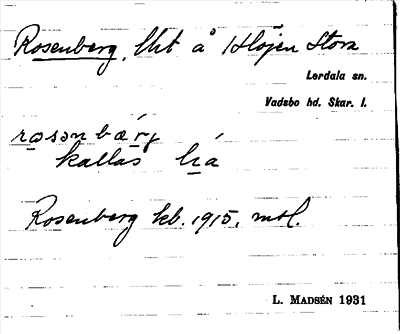 Rosenberg, lht å Höjen Stora
Lerdala sn.
Vadsbo hd. Skar. l.
rosənbærj
kallas há
Rosenberg kb. 1915, mtl.
L. MADSÉN 1931